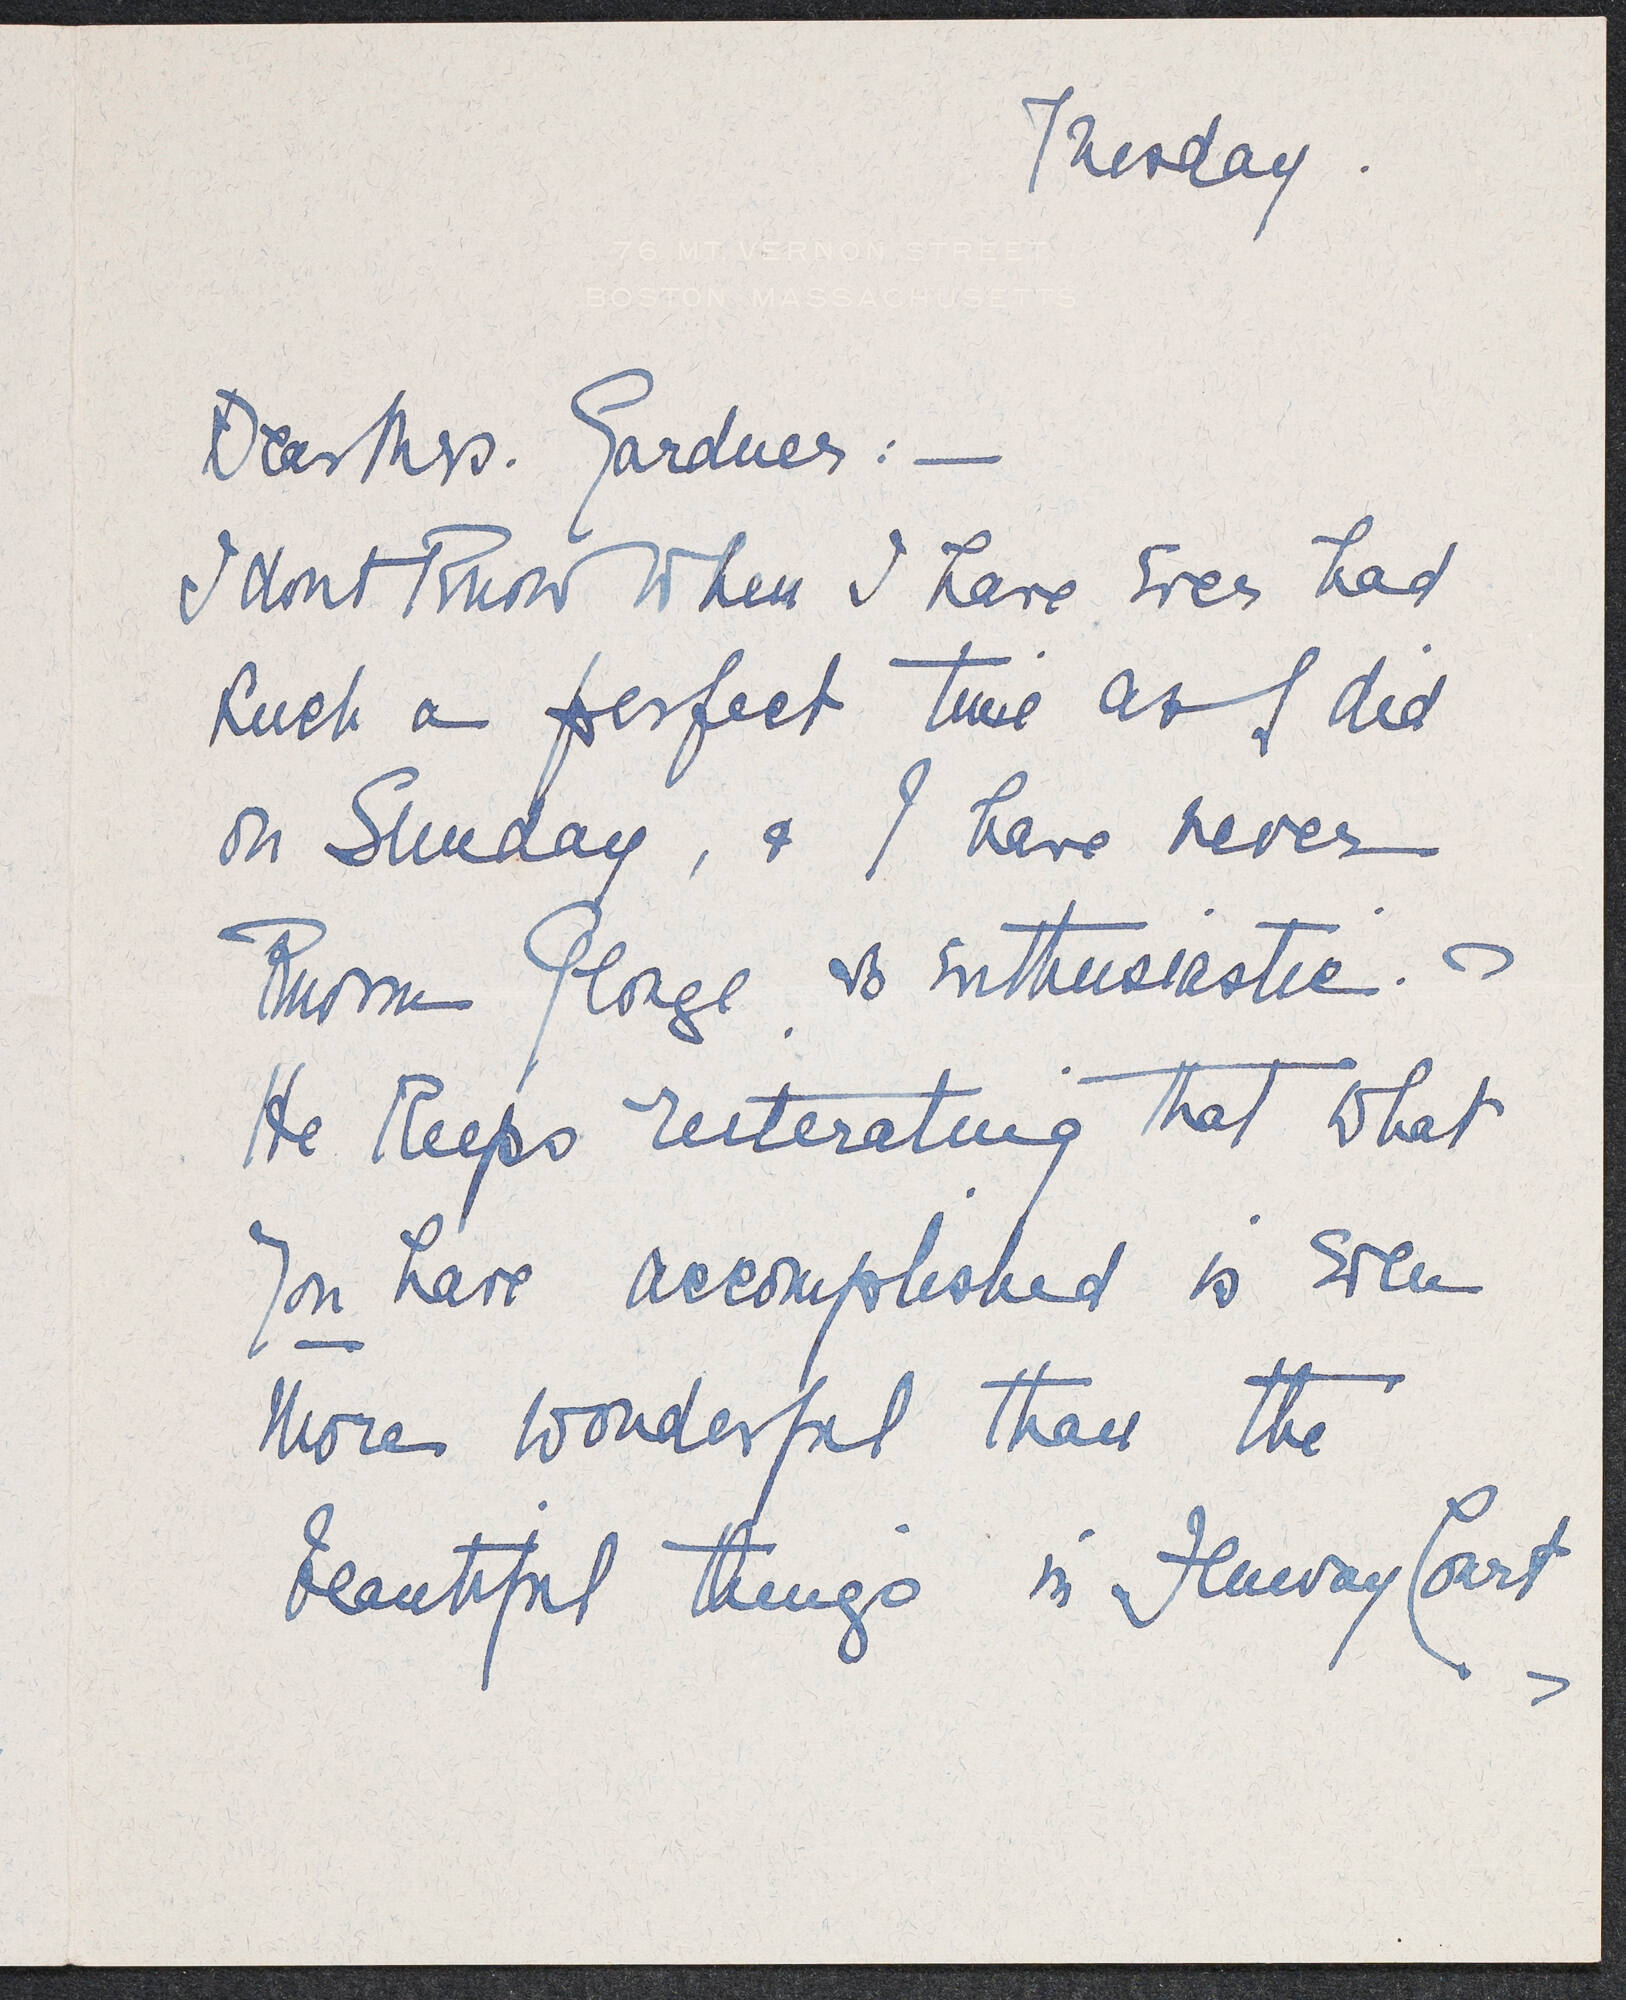 Tuesday.
76 MT. VERNON STREET
BOSTON MASSACHUSETTS
Dear Mrs. Gardner:—
I dont Know When I have Ever had
Such a perfect time as I did
on Sunday, & I have never
Known George so Enthusiastic.
He Keeps reiterating that What
You have accomplished is Even
More wonderful than the
Beautiful things in Fenway Court